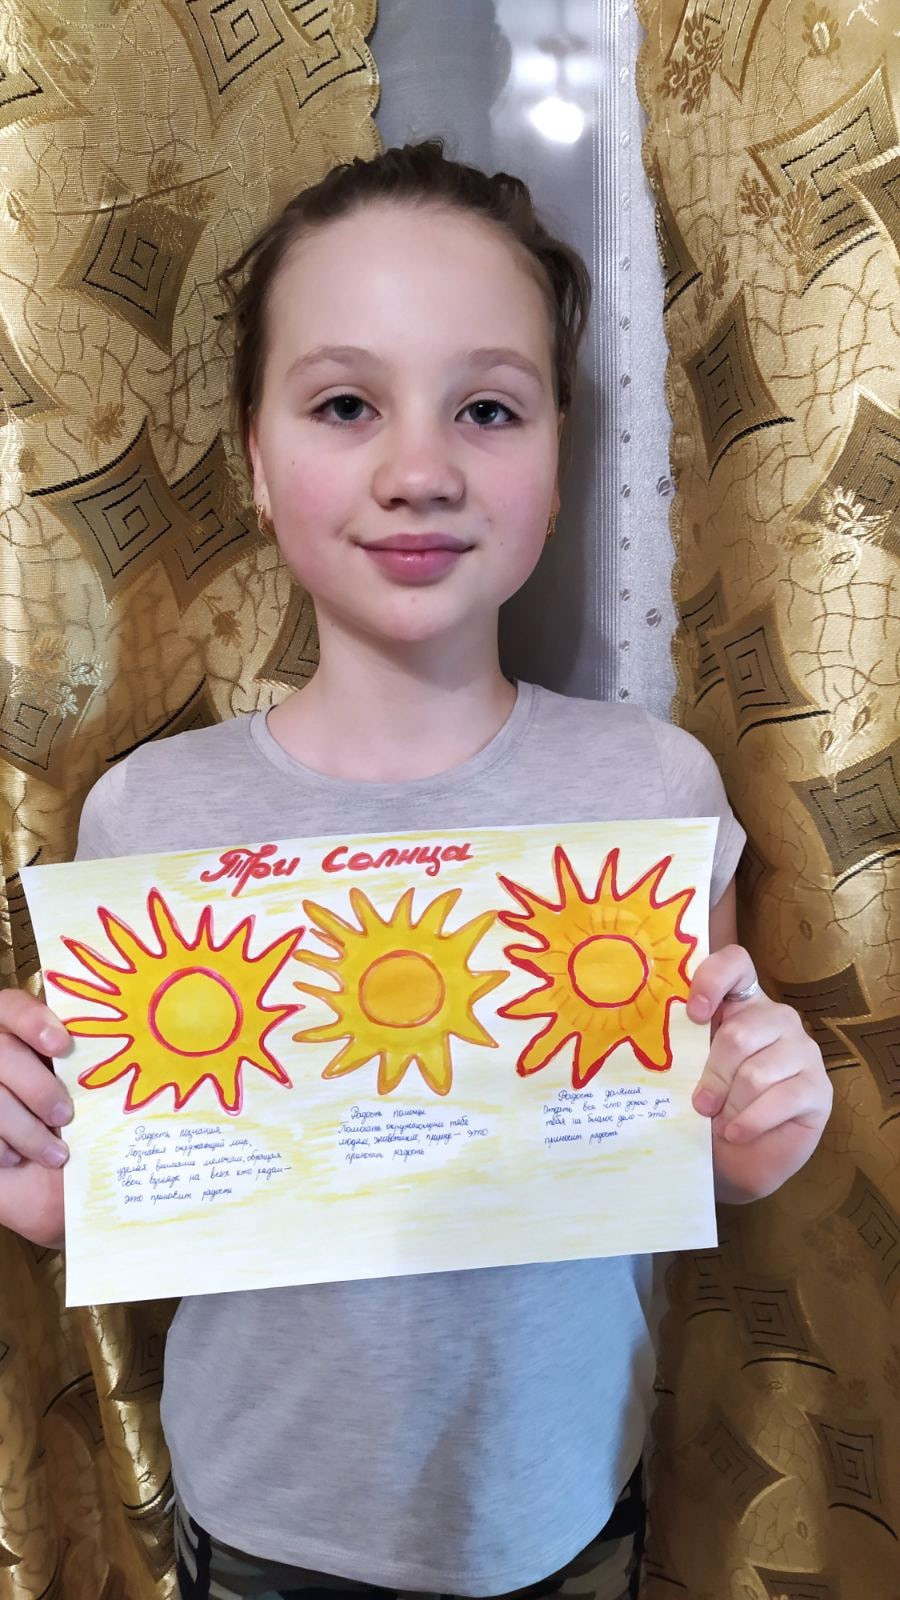 Три Солнца
Радость познания
Познавая окружающий мир,
уделяя внимание мелочам, обращая
свои взгляды на всех кто рядом —
это приносит радость
Радость помощи
Помогать окружающим тебе
людям, животным, природе — это
приносит радость
Радость
Отдать все что дорого для
тебя на благое дело — это
приносит радость